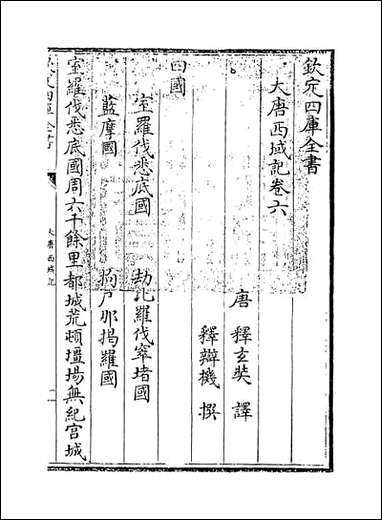 欽定四庫全書
大唐西域記卷六
唐 釋玄奘 譯
釋辯機 撰
四國
室羅伐悉底國 劫比羅伐窣堵國
藍摩國 拘尸那揭羅國
室羅伐悉底國周六千餘里都城荒頓壃場無紀宮城
大唐西域記